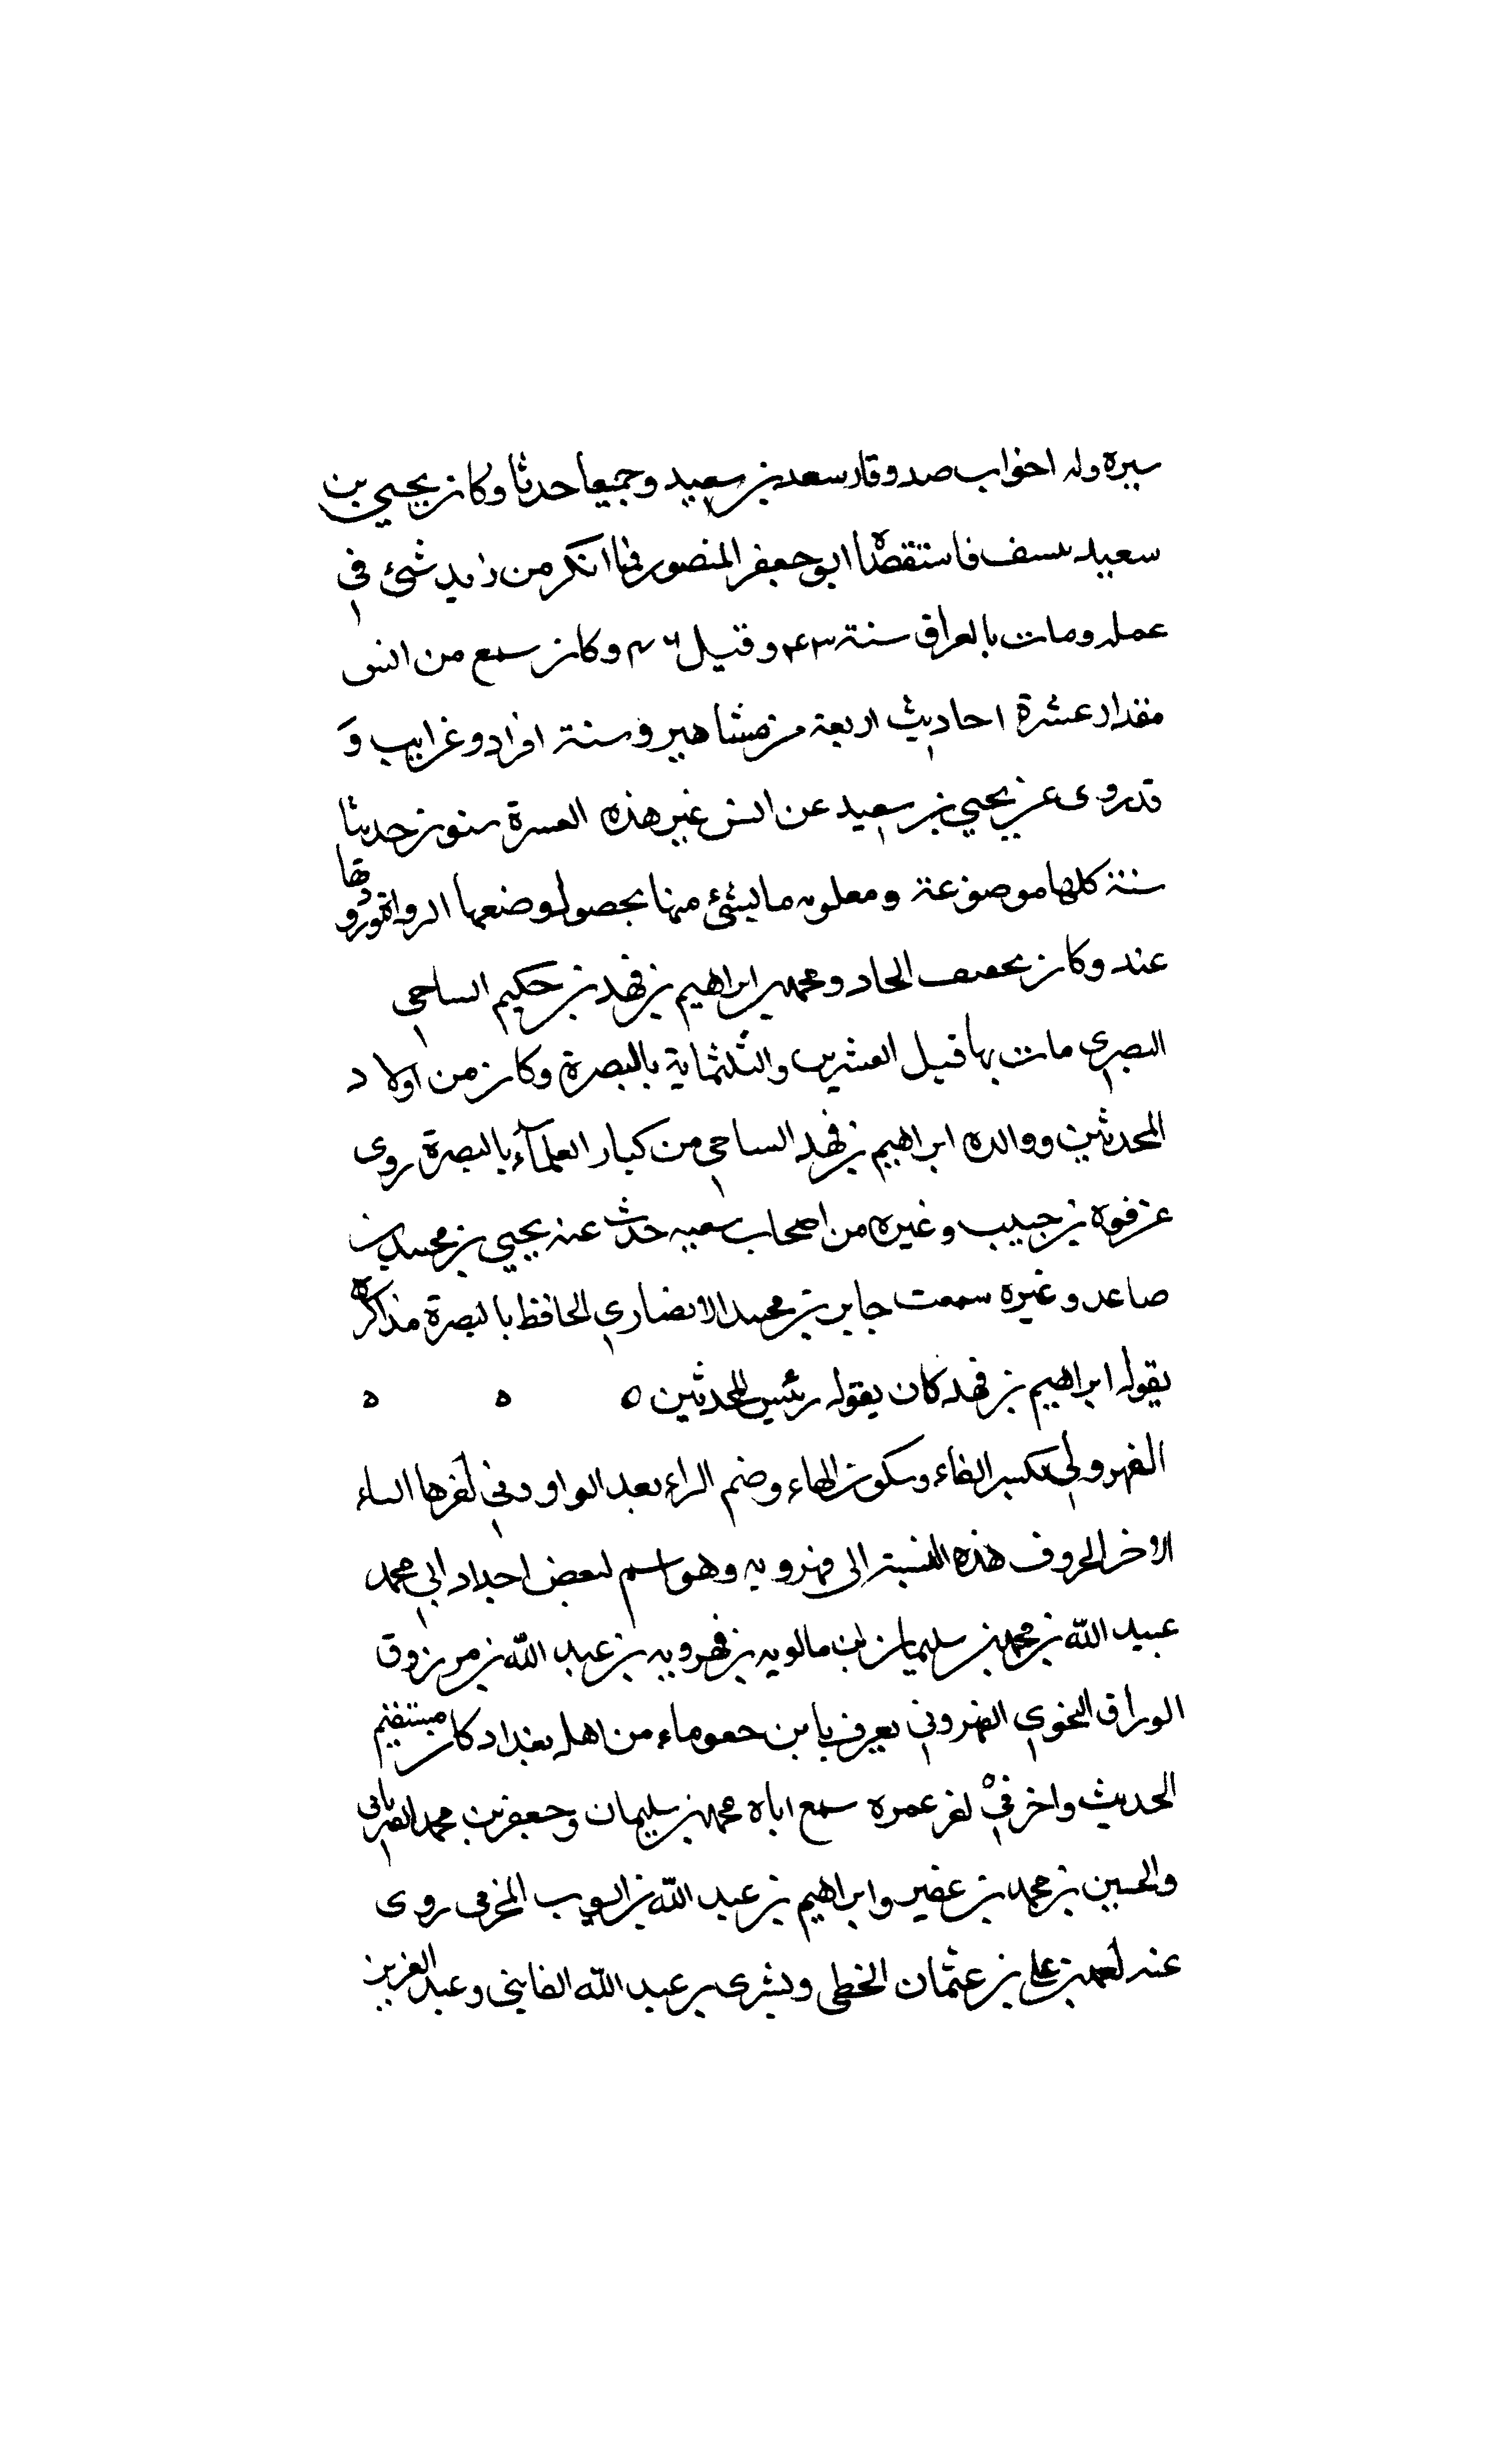 سيره وله اخواب صدوقار سعد بن سعيد وجميعا حدثا وكان يحيي بن
سعيد فاستقضاه ابو جعفر المنصور فما انكر من زيد شئ في
عمله ومات بالعراق سنة ٤٣ وقيل ٤٦ وكان سمع من انس
مقدار عشرة احاديث اربعة من مشاهير وستة افراد وغرايب و
قد روى عن يحيي بن سعيد عن انس غير هذه العشرة حديثا
ستة كلها موضوعة ومعلوم ما ليشئ منها وضعها الرواة
عنه وكان ومحمد بن ابراهيم بن فهد بن حكيم الساجي
البصري مات بها قبل العشرين والثلثماية بالبصرة وكان من اولاد
المحدثين ووالده ابراهيم بن فهد الساجي من كبار العلمآء بالبصرة روى
عن قوة بن حبيب وغيره من اصحاب شعبه حدث عنه يحيي بن محمد بن
صاعد وغيره سمعت جابر بن محمد الانصاري الحافظ بالبصرة مذاكره
يقول ابراهيم بن فهد كان يقول رئيس المحدثين ه ه ه
الفهرولي بكسر الفاء وسكون الهاء وضم الراء بعد الواو وفي لفرها الياء
الاخر الحروف هذه النسبة الى فهرويه وهو اسم لبعض اجداد ابي محمد
عبيد الله بن محمد بن سليمان بن مالويه بن فهرويه بن عبد الله بن مرزوق
الوراق النخوي الفهروني يعرف بابن من اهل بغداد كان مستقيم
الحديث واخر في لفر عمره سمع اباه محمد بن سليمان وجعفر بن محمد الفريابي
والحسين بن محمد بن عفير وابراهيم بن عبد الله بن ايوب المخرمي روى
عنه بن علي بن عثمان الخطي وبشرى بن عبد الله الفايني وعبد العزيز